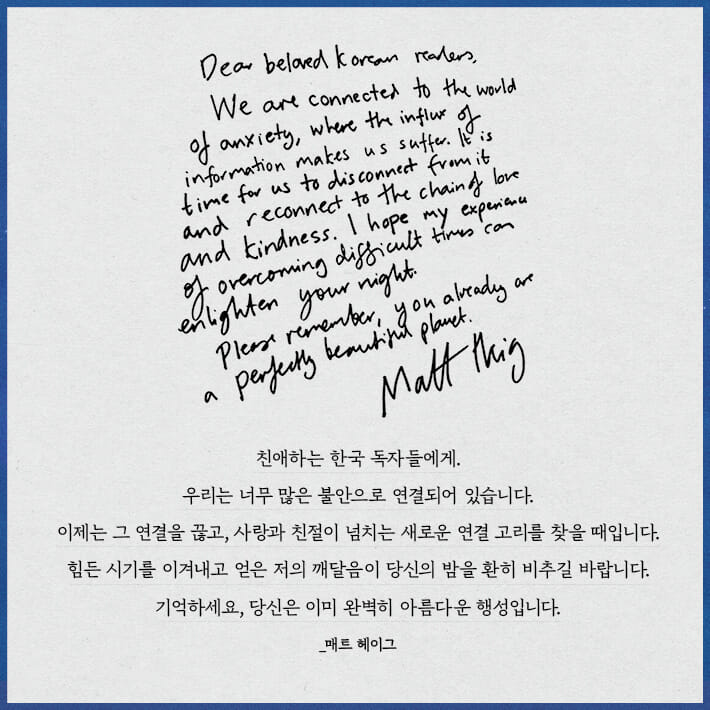 Dear beloved Korean readers,
We are connected to the world
of anxiety, where the influx of
information makes us suffer. It is
time for us to disconnect from it
and reconnect to the chain of love
and kindness. I hope my experience
of overcoming difficult times can
enlighten your night.
Please remember, you already are
a perfectly beautiful planet.
Matt Haig
친애하는 한국 독자들에게.
우리는 너무 많은 불안으로 연결되어 있습니다.
이제는 그 연결을 끊고, 사랑과 친절이 넘치는 새로운 연결 고리를 찾을 때입니다.
힘든 시기를 이겨내고 얻은 저의 깨달음이 당신의 밤을 환히 비추길 바랍니다.
기억하세요, 당신은 이미 완벽히 아름다운 행성입니다.
_매트 헤이그